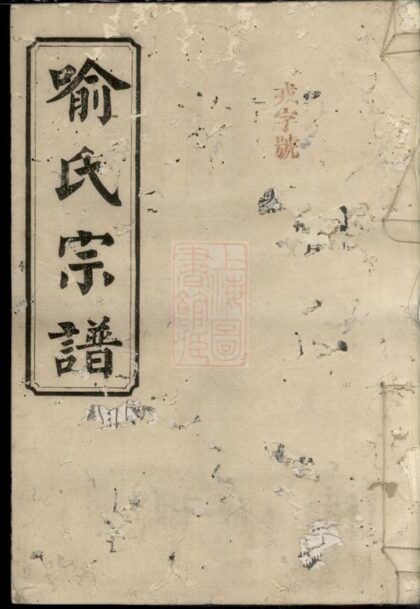 喻氏宗譜
戎字號
上海圖
書館藏